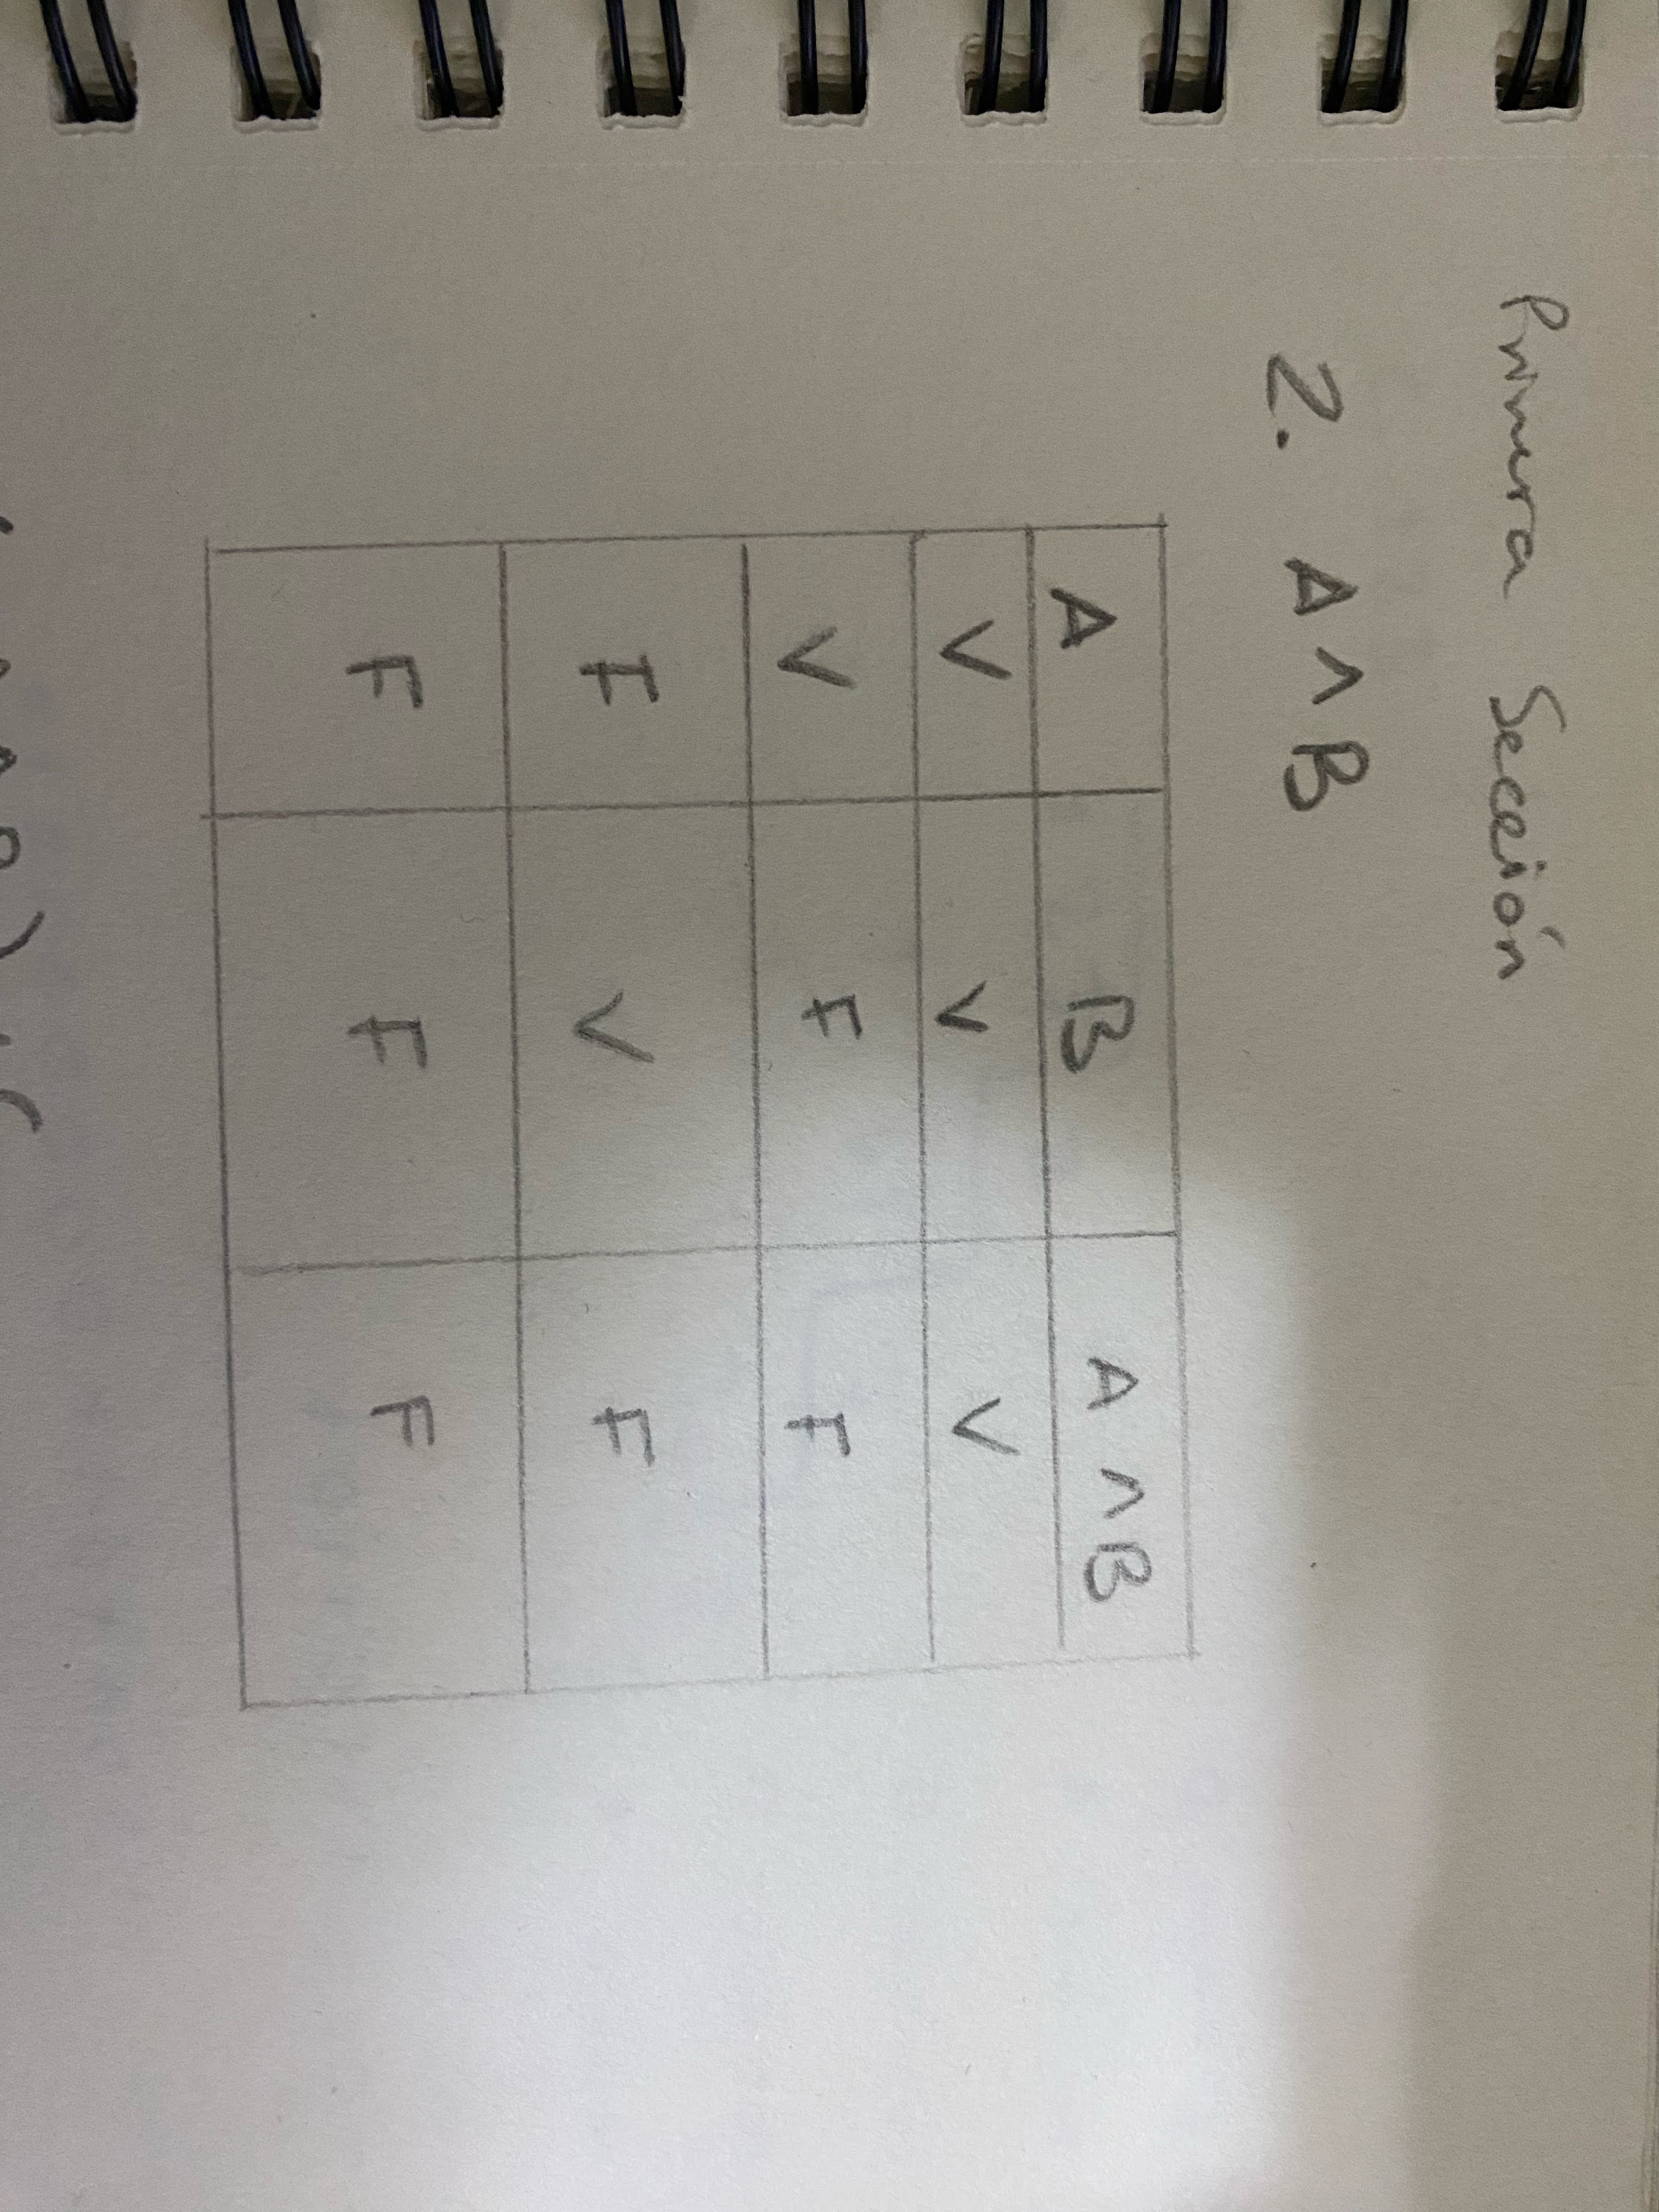 Primera Sección
2. A ∧ B
A B A ∧ B
V V V
V F F
F V F
F F F